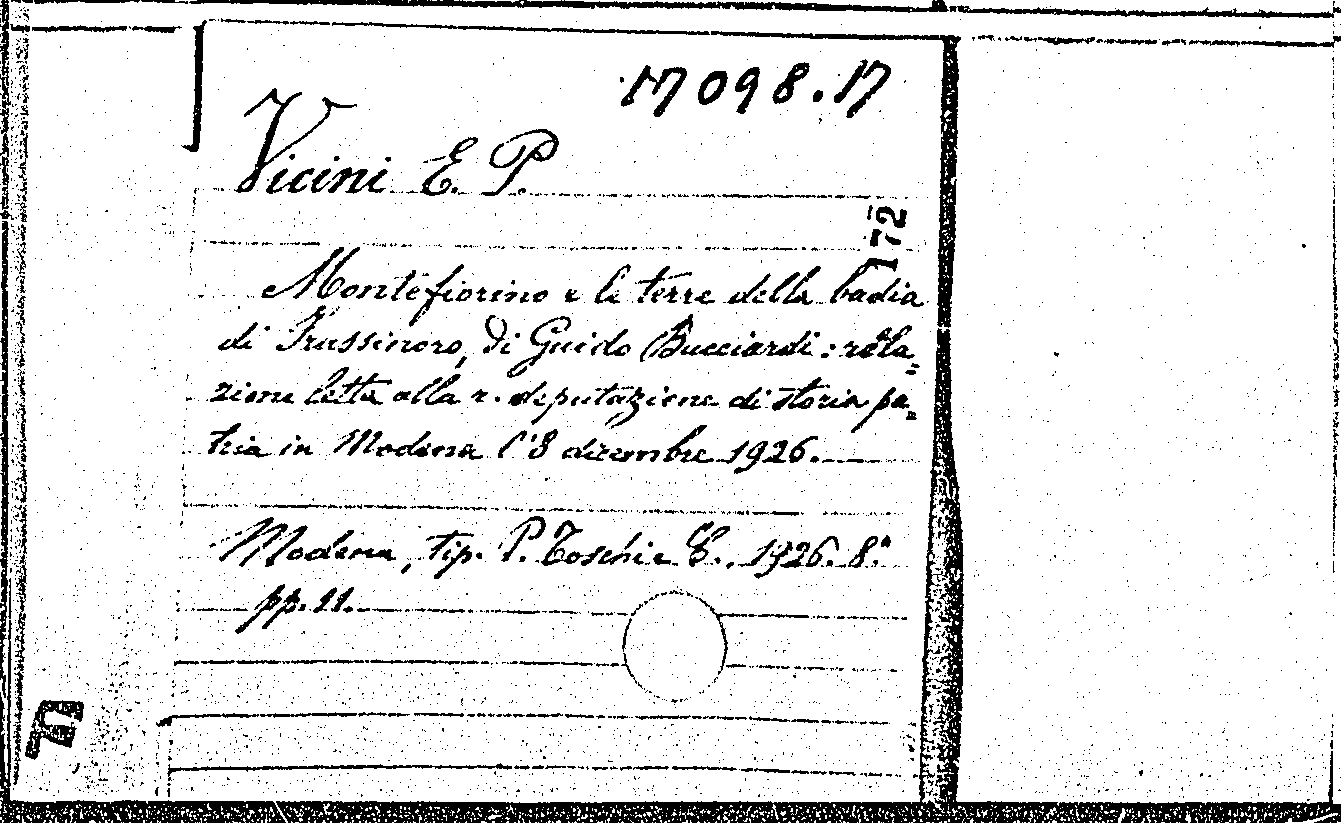 17098.17
Vicini E. P.
172
Montefiorino e le terre della badia
di Frassinoro, di Guido Bucciardi: rela=
zione letta alla r. deputazione di storia pa=
tria in Modena l'8 dicembre 1926.
Modena, tip. P. Toschi e C., 1926. 8.°
pp. 11.